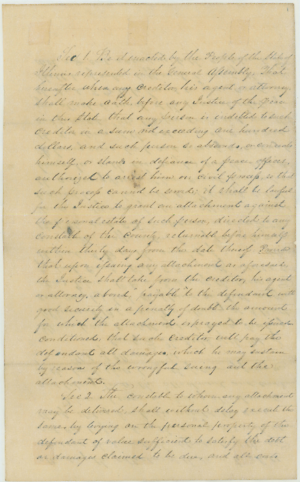 Sec. 1. Be it enacted by the People of the State of
Illinois represented in the General Assembly, That
hereafter when any creditor, his agent or attorney
shall make oath before any Justice of the peace
in this State that any person is indebted to such
creditor in a sum not exceeding one hundred
dollars, and such person so absconds, or conceals
himself, or stands in defiance of a peace officer
authorized to arrest him on civil process, so that
such process cannot be served, it shall be lawful
for the Justice to grant an attachment against
the personal estate of such person, directed to any
constable of the County, returnable before himself
within thirty days from the date thereof Provided
that upon issuing any attachment as aforesaid
the Justice shall take from the creditor, his agent
or attorney a bond payable to the defendant with
good security in a penalty of double the amount
for which the attachment is prayed to be issued
conditioned that such creditor will pay the
defendant all damages which he may sustain
by reason of the wrongful suing out the
attachment.
Sec 2. The constable to whom any attachment
may be delivered shall without delay execute the
same by levying on the personal property of the
defendant of value sufficient to satisfy the debt
or damages claimed to be due, and all costs